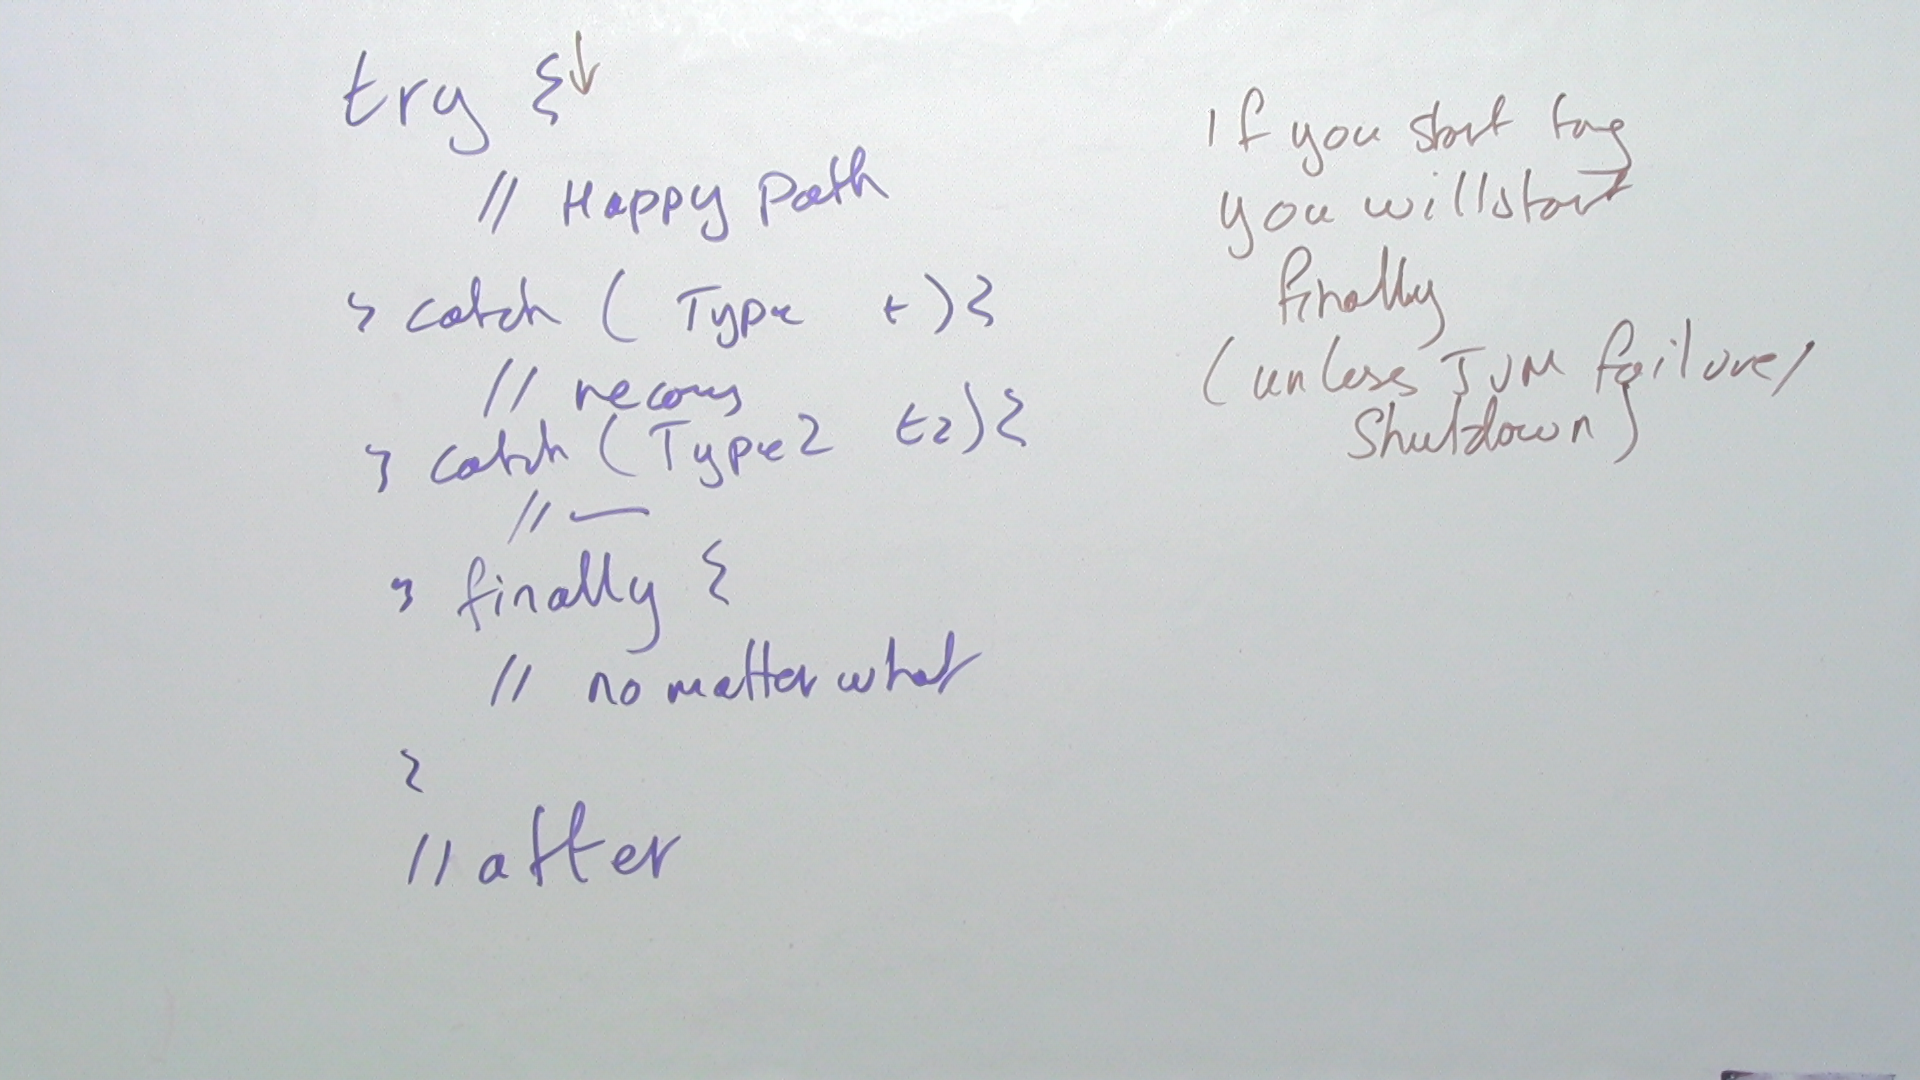 try {↓
// Happy Path
} catch ( Type t ) {
// recovery
} catch ( Type2 t2 ) {
// —
} finally {
// no matter what
}
// after
If you start try
you will start
finally
(unless JVM failure/
Shutdown)